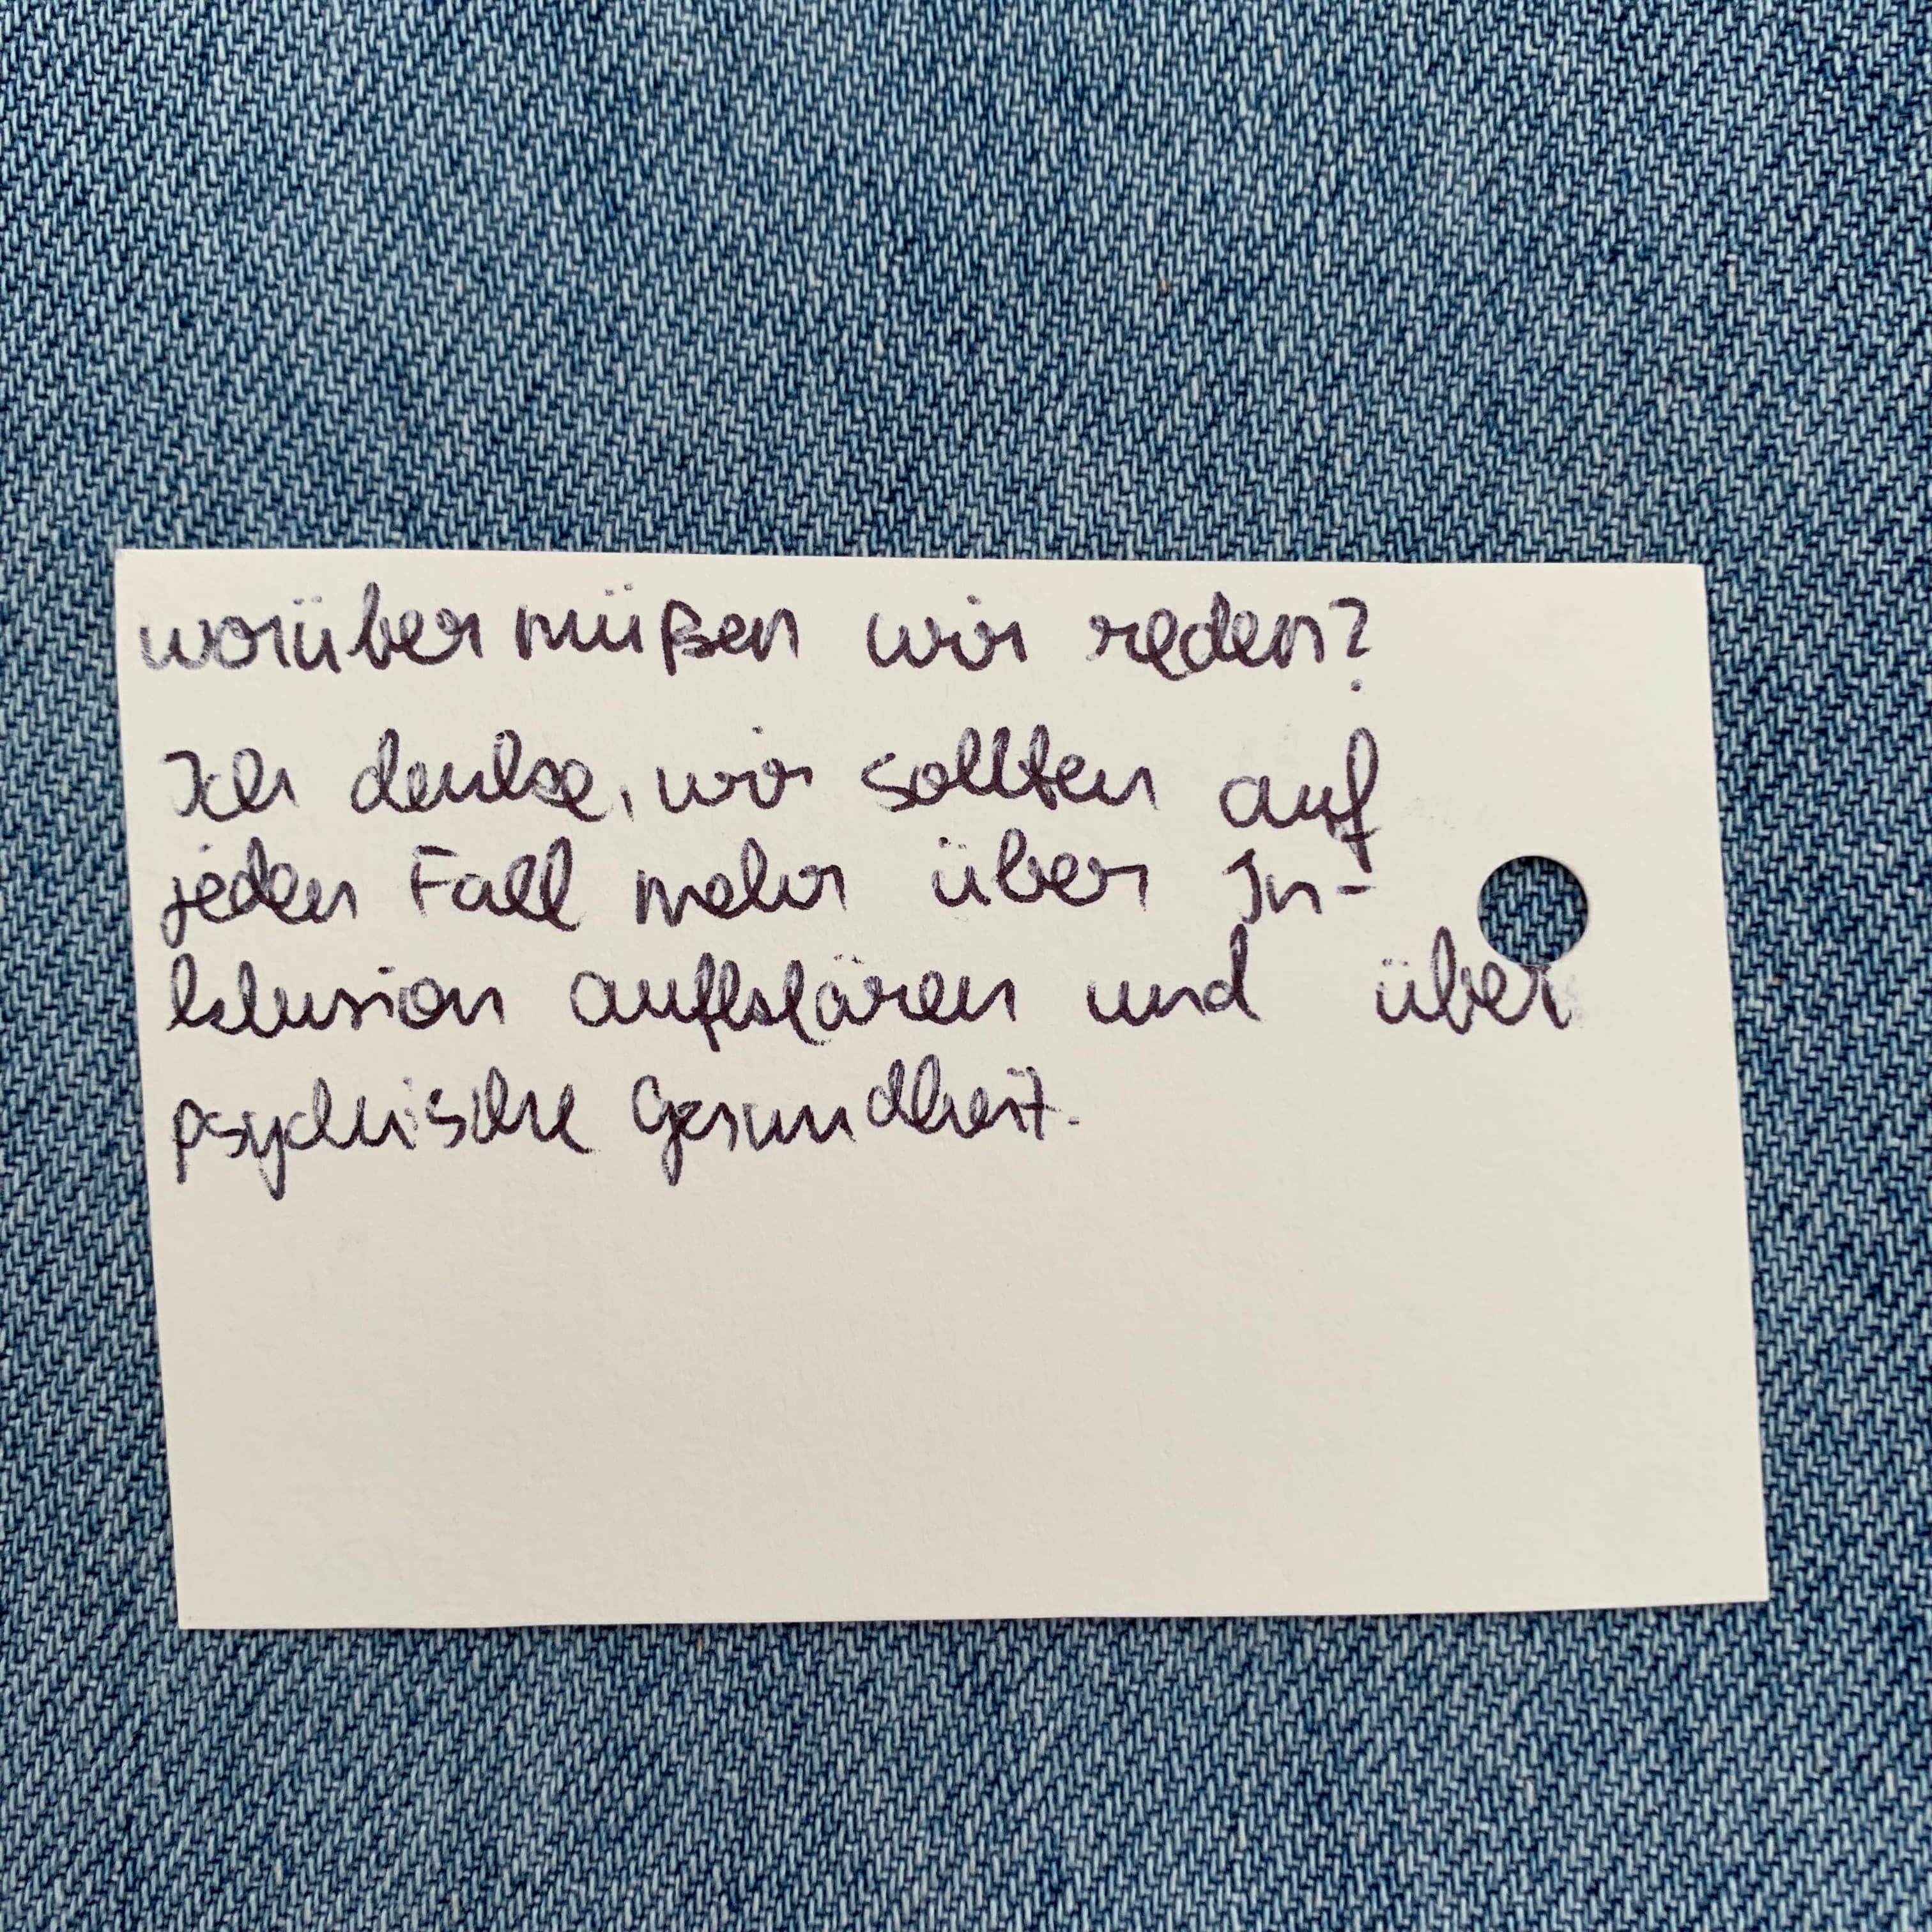 worüber müßen wir reden?
Ich denke, wir sollten auf
jeden Fall mehr über In-
klusion aufklären und über
psychische Gesundheit.